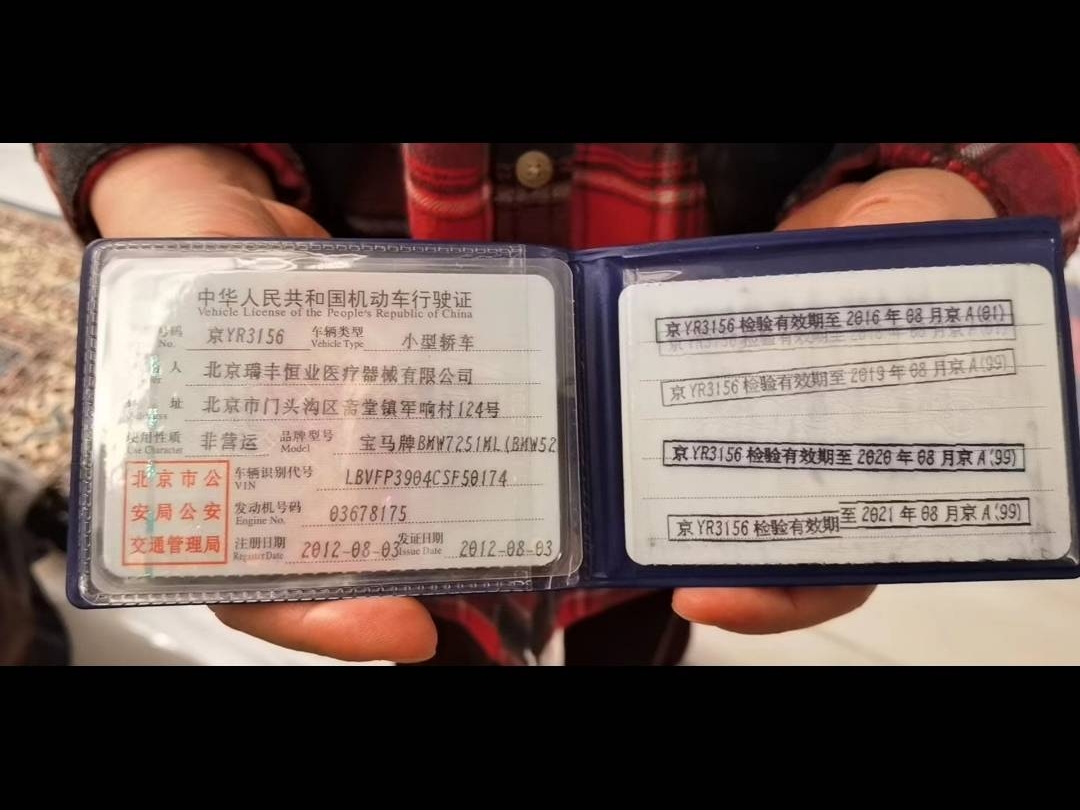 中华人民共和国机动车行驶证
Vehicle License of the People's Republic of China
号码 京YR3156 车辆类型 小型轿车
No. Vehicle Type
人 北京瑞丰恒业医疗器械有限公司
址 北京市门头沟区斋堂镇军响村124号
使用性质 非营运 品牌型号 宝马牌BMW7251ML(BMW52
Use Character Model
北京市公
安局公安
交通管理局
车辆识别代号 LBVFP3904CSF50174
VIN
发动机号码 03678175
Engine No.
注册日期 2012-08-03 发证日期 2012-08-03
Register Date Issue Date
京YR3156检验有效期至2016年08月京A(01)
京YR3156检验有效期至2019年08月京A(99)
京YR3156检验有效期至2020年08月京A(99)
京YR3156检验有效期至2021年08月京A(99)